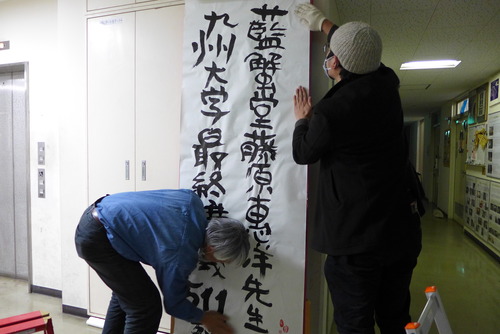 藍蟹堂藤原惠洋先生
九州大学最終講義